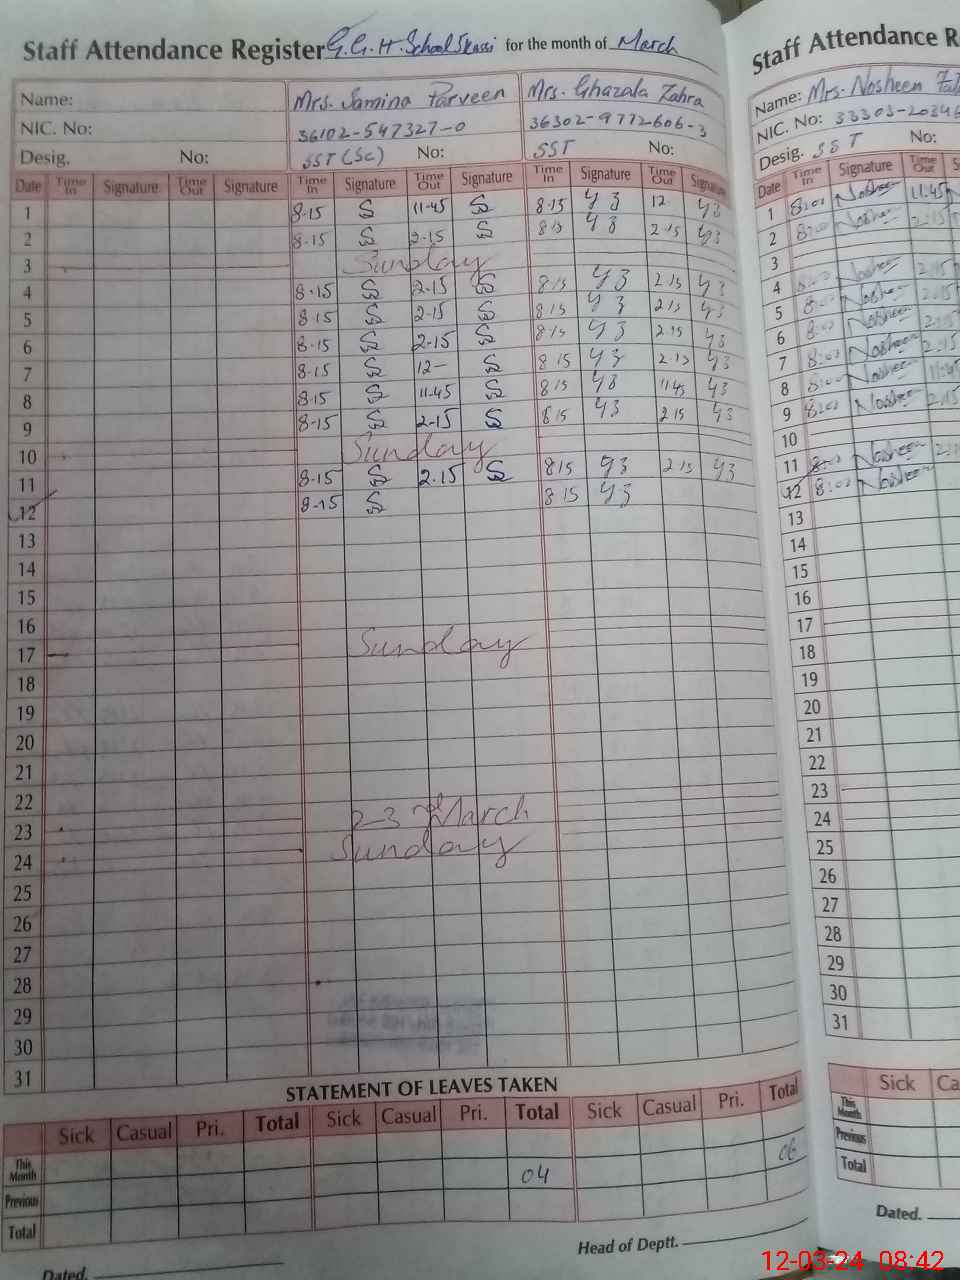 Staff Attendance Register G.G.H. School for the month of March
Name: Mrs. Samina Parveen Mrs. Ghazala Zahra
NIC. No: 36102-547327-0 36302-9772606-3
Desig. No: SST (Sc) No: SST No:
Date Time In Signature Time Out Signature Time In Signature Time Out Signature Time In Signature Time Out Signature
1 8-15 11-45 8-15 12
2 8-15 2-15 8 15 2-15
3 Sunday
4 8-15 2-15 8 15 2 15
5 8-15 2-15 8 15 2 15
6 8-15 2-15 8 15 2-15
7 8-15 12- 8 15 2-15
8 8-15 11-45 8 15 11 45
9 8-15 2-15 8 15 2 15
10 Sunday
11 8-15 2.15 8 15 2 15
12 8-15 8 15
13
14
15
16
17 Sunday
18
19
20
21
22
23 23rd March
24 Sunday
25
26
27
28
29
30
31
STATEMENT OF LEAVES TAKEN
Sick Casual Pri. Total Sick Casual Pri. Total Sick Casual Pri. Total
This Month
Previous 04
Total
Dated. Head of Deptt.
Staff Attendance R
Name: Mrs. Nosheen
NIC. No: 33303-20346
Desig. SST
Date Time In Signature Time Out
1 8:00 Nosheen 11.45
2 8:00 Nosheen 2:15
3
4 8:00 Nosheen 2:15
5 8:00 Nosheen 2:15
6 8:00 Nosheen 2:15
7 8:00 Nosheen 2:15
8 8:00 Nosheen 11:45
9 8:00 Nosheen 2:15
10
11 8:00 Nosheen
12 8:00 Nosheen
13
14
15
16
17
18
19
20
21
22
23
24
25
26
27
28
29
30
31
Sick Ca
This Month
Previous
Total
Dated.
12-03-24 08:42